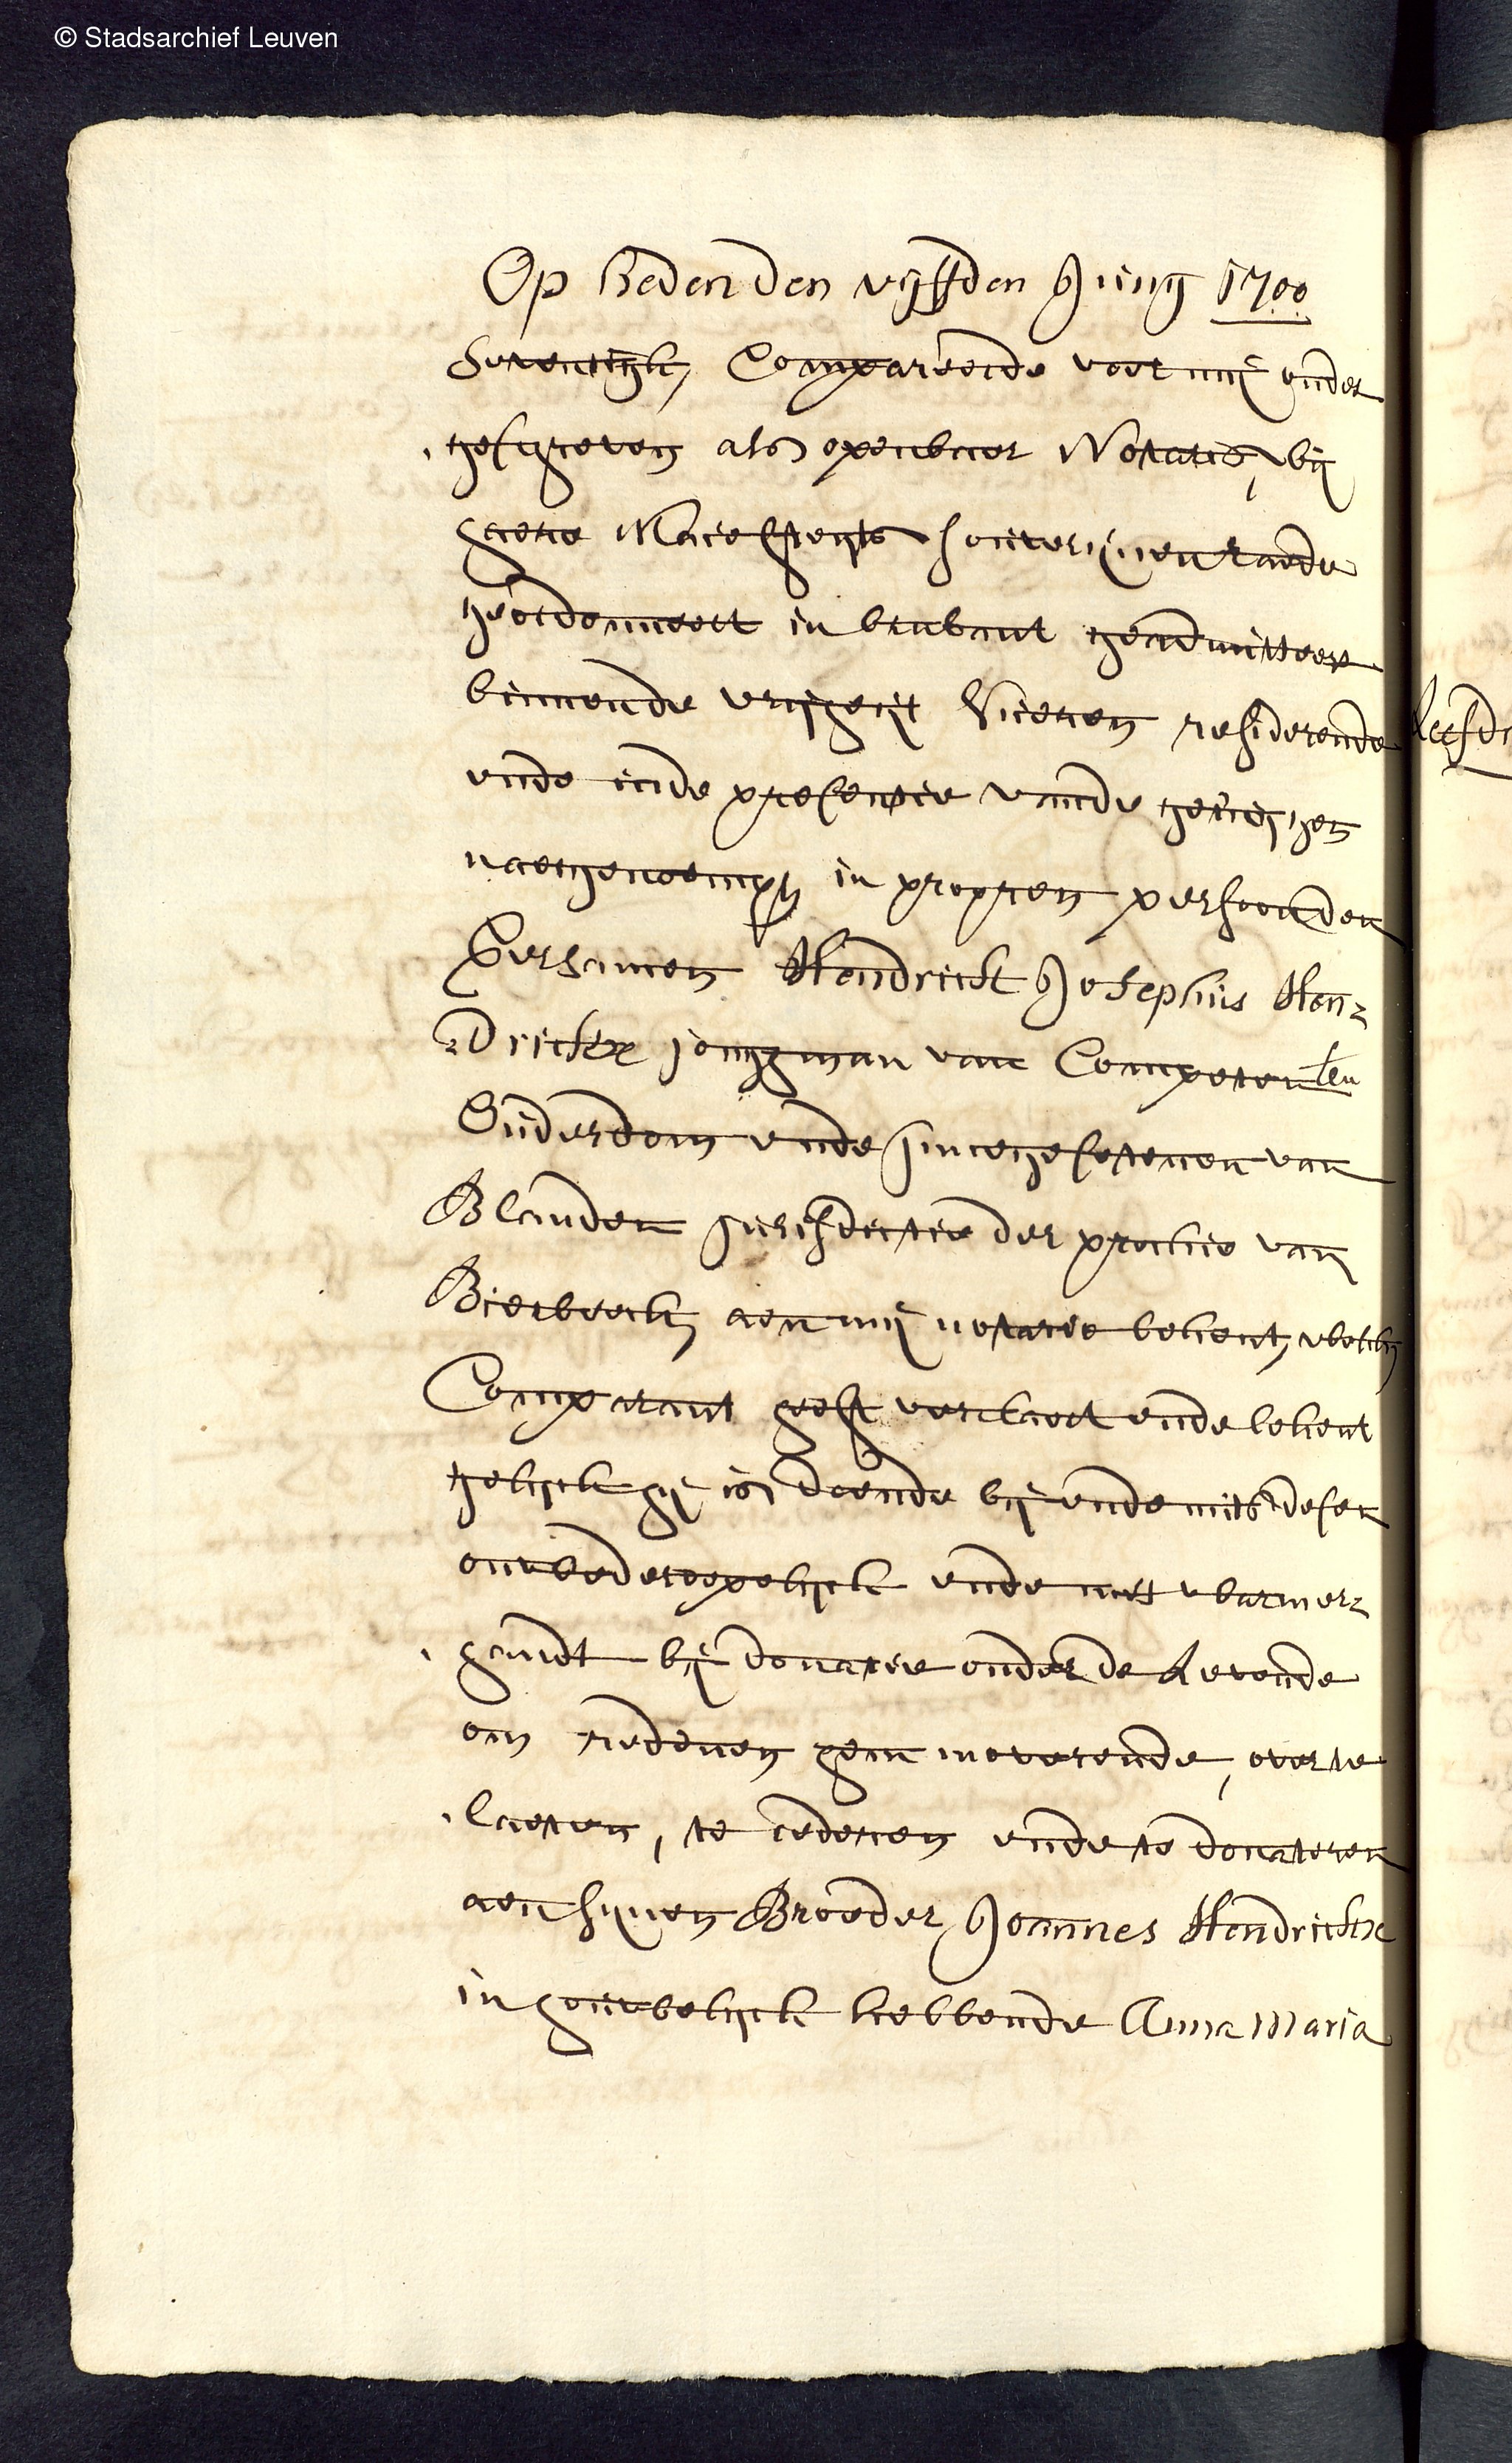 © Stadsarchief Leuven
Op heden den vyffden Juny 1700
seventigh, Compareerde voor mij onder
gescreven als openbaer Notaris, bij
haere Majesteyts souverynen raede
geordonneert in brabant geadmitteert
binnende vryheyt Vieren residerende
ende inde presentie vande getuygen
naergenoempt in propren persoonden
Eersamen Hendrickt Josephus Hen=
=drickx jongman van Competenten
Ouderdom ende ingesetenen van
Blanden jurisdictie der prochie van
Bierbeeck aen mij notaris bekent, welcken
Comparant heeft verclaert ende bekent
gelyck hij is doende bij ende mits desen
onwederroepelyck ende met warmer=
handt bij donatie onder de levende
om redenen hem moverende, over te
laeten, te cederen ende te donateren
aen synen Broeder Joannes Hendrickx
in houwelyck hebbende Anna Maria
leefd